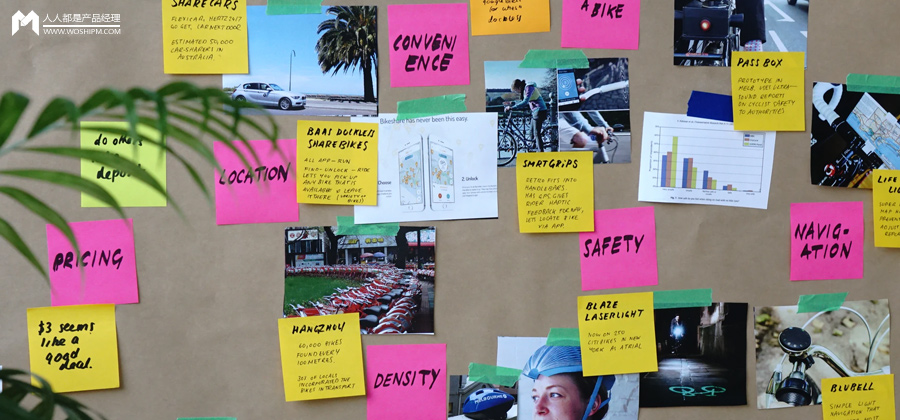 人人都是产品经理
WWW.WOSHIPM.COM
SHARECARS
FLEXICAR, HERTZ 24/7
GO GET, CAR NEXT DOOR
ESTIMATED 50,000
CAR-SHARERS IN
AUSTRALIA.
CONVENI
ENCE
A BIKE
PASS BOX
PROTOTYPE IN
MELB. USES ULTRA-
SOUND REPORTS
ON CYCLIST SAFETY
TO AUTHORITIES
do others
LOCATION
BAAS DOCKLESS
SHARE BIKES
ALL APP-RUN
FIND-UNLOCK-RIDE
LETS YOU PICK UP
ANY BIKE THAT IS
AVAILABLE & LEAVE
IT THERE
Bikeshare has never been this easy.
2. Unlock
SMRTGRIPS
RETRO FITS INTO
HANDLEBARS.
HAS GPS, GIVES
RIDER HAPTIC
FEEDBACK FOR NAV,
LETS LOCATE BIKE
VIA APP.
PRICING
SAFETY
NAVIG-
ATION
$3 seems
like a
good
deal.
HANGZHOU
60,000 BIKES
FOUND EVERY
100 METRES.
30% OF LOCALS
INCORPORATED THE
BIKES IN TRANSPORT
DENSITY
BLAZE
LASERLIGHT
NOW ON 250
CITIBIKES IN NEW
YORK AS A TRIAL
MELBOURNE
BLUBELL
SIMPLE LIGHT
NAVIGATION THAT